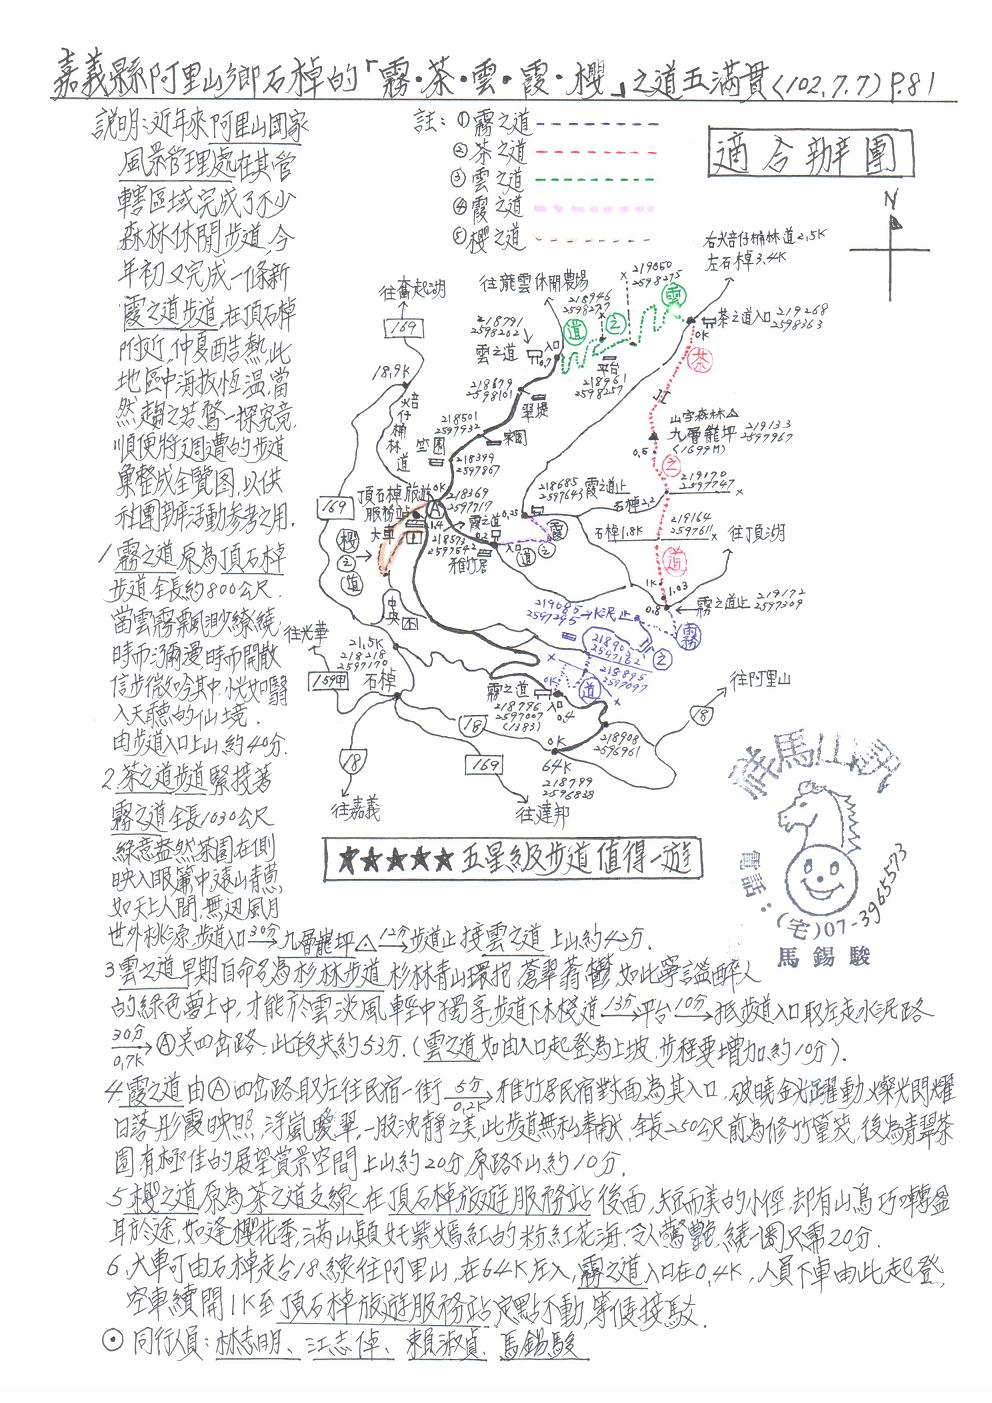 嘉義縣阿里山鄉石棹的「霧・茶・雲・霞・櫻」之道五滿貫(102.7.7) P.81
說明:近年來阿里山國家
風景管理處在其管
轄區域完成了不少
森林休閒步道,今
年初又完成一條新
霞之道步道,在頂石棹
附近,仲夏酷熱,此
地區中海拔恆溫,當
然趨之若鶩一探究竟,
順便將週遭的步道
彙整成全覽图,以供
社團辦活動參考之用.
註:①霧之道
②茶之道
③雲之道
④霞之道
⑤櫻之道
適合辦團
N
右火焙仔桶林道2.5K
左石棹3.4K
往奮起湖
往龍雲休閒農場
169
18.9K
焙仔桶林道
218791
2598202
雲之道
入口
0.7
218946
2598277
219050
2598275
雲之道
平台
218961
2598257
茶之道入口
219268
2598363
0K
218679
2598101
翠堤
218501
2597932
茶園
竺園
218399
2597867
茶之道
山字森林△
九層巃坪
(1699M)
219133
2597967
0.5
219170
2597747
石棹2.2
219164
2597611
石棹1.8K
往頂湖
1K
1.03
0.8
霧之道止
219172
2597309
頂石棹旅遊服務站
0K
A
大車
1.4
218369
2597717
218573
2597542
霞之道
0.2
雅竹居
入口
218685
2597643
霞之道止
0.25
霞之道
櫻之道
169
中央
往光華
159甲
21.5K
218218
2597170
石棹
219085
2597295
水泥止
218908
2597162
218895
2597097
霧之道
霧之道
入口
0K
218796
2597007
(1383)
0.4
218908
2596961
0K
64K
218799
2596838
18
169
18
18
往阿里山
往嘉義
往達邦
★★★★★五星級步道值得一遊
祥馬山訊
電話:(宅)07-3965573
馬錫駿
1.霧之道原為頂石棹
步道全長約800公尺.
當雲霧飄渺繚繞,
時而瀰漫時而開散
信步徜如今其中,恍如翳
入天聽的仙境.
由步道入口上山約40分.
2.茶之道步道緊接著
霧之道全長1030公尺
綠意盎然茶園在側
映入眼簾中遠山青蔥,
如天上人間,無邊風月
世外桃源,步道入口30分→九層巃坪△12分→步道止接雲之道上山約42分.
3.雲之道早期自命名為杉林步道 杉林青山環抱 蒼翠蓊鬱,如此寧謐醉人
的綠色夢土中,才能於雲淡風輕中獨享,步道下木棧道13分→平台10分→抵步道入口取左走水泥路
30分→0.7K Ⓐ桌四岔路,此段共約53分.(雲之道如由入口起登為上坡,步程要增加約10分).
4.霞之道由Ⓐ四岔路取左往民宿一街5分→0.2K雅竹居民宿對面為其入口,破曉金光躍動,燦光閃耀
日落彤霞映照,浮嵐曖翠,一股沈靜之美,此步道無私奉獻,全長250公尺前為修竹篁茂,後為青翠茶
園有極佳的展望賞景空間上山約20分,原路下山約10分.
5.櫻之道原為茶之道支線,在頂石棹旅遊服務站後面,短而美的小徑,却有山鳥巧囀盈
耳於途,如逢櫻花季,滿山顛奼紫嫣紅的粉紅花海,令人驚艷,繞一圈只需20分.
6.大車可由石棹走台18線往阿里山,在64K左入,霧之道入口在0.4K,人員下車由此起登,
空車續開1K至頂石棹旅遊服務站定點不動,等候接駁.
⊙同行人員:林志明、江志偉、賴淑貞、馬錫駿